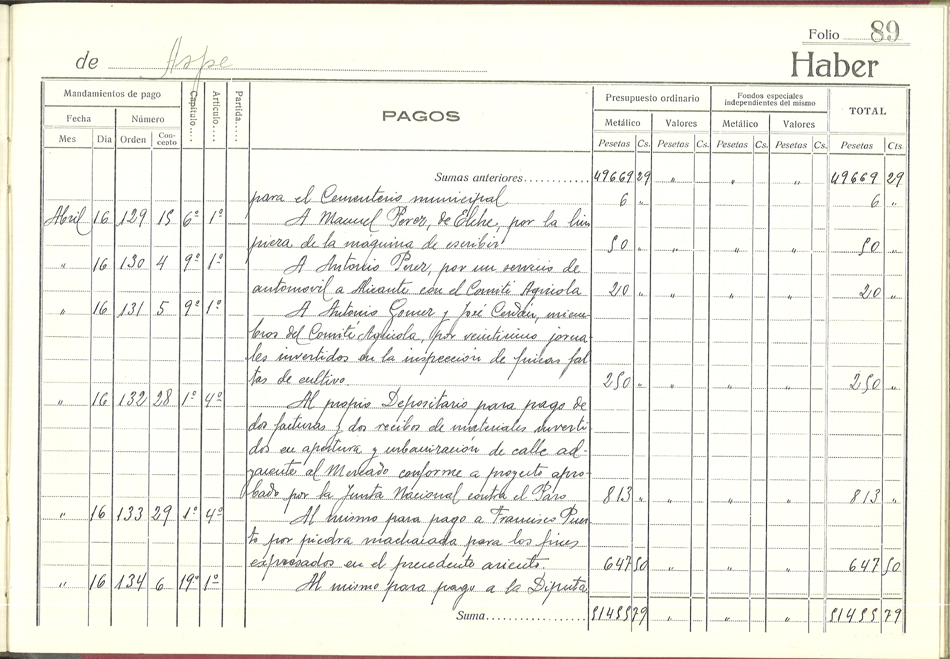 Folio 89
de Aspe
Haber
Mandamientos de pago Capítulo.... Artículo.... Partida.... PAGOS Presupuesto ordinario Fondos especiales independientes del mismo TOTAL
Fecha Número Metálico Valores Metálico Valores
Mes Día Orden Concepto Pesetas Cs. Pesetas Cs. Pesetas Cs. Pesetas Cs. Pesetas Cts.
Sumas anteriores............ 49669 29 " " " 49669 29
para el Cementerio municipal 6 " 6 "
Abril 16 129 15 6º 1º A Manuel Perez, de Elche, por la lim
pieza de la máquina de escribir 50 " " " " 50 "
" 16 130 4 9º 1º A Antonio Perez, por un servicio de
automovil a Alicante con el Comité Agricola 20 " " " " 20 "
" 16 131 5 9º 1º A Antonio Gomez y José Cerdán, miem-
bros del Comité Agricola, por veinticinco jorna-
les invertidos en la inspeccion de fincas fal
tas de cultivo. 250 " " " " 250 "
" 16 132 28 1º 4º Al propio Depositario para pago de
dos facturas y dos recibos de materiales inverti
dos en apertura y urbanización de calle ad-
yacente al Mercado conforme a proyecto apro-
bado por la Junta Nacional contra el Paro 813 " " " " 813 "
" 16 133 29 1º 4º Al mismo para pago a Francisco Puer
to por piedra machacada para los fines
expresados en el precedente asiento. 647 50 " " " 647 50
" 16 134 6 19º 1º Al mismo para pago a la Diputa
Suma.................. 51455 79 " " " 51455 79